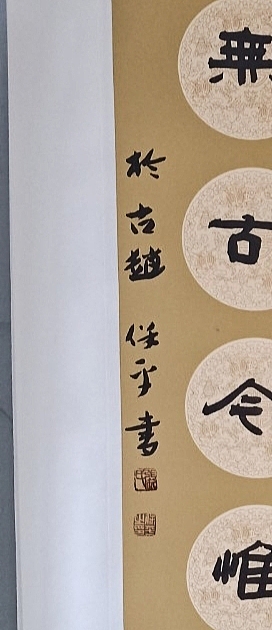 無古今惟
於古趙任平書